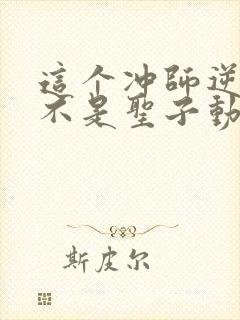 這个冲師逆徒才
不是聖子動
斯皮尔